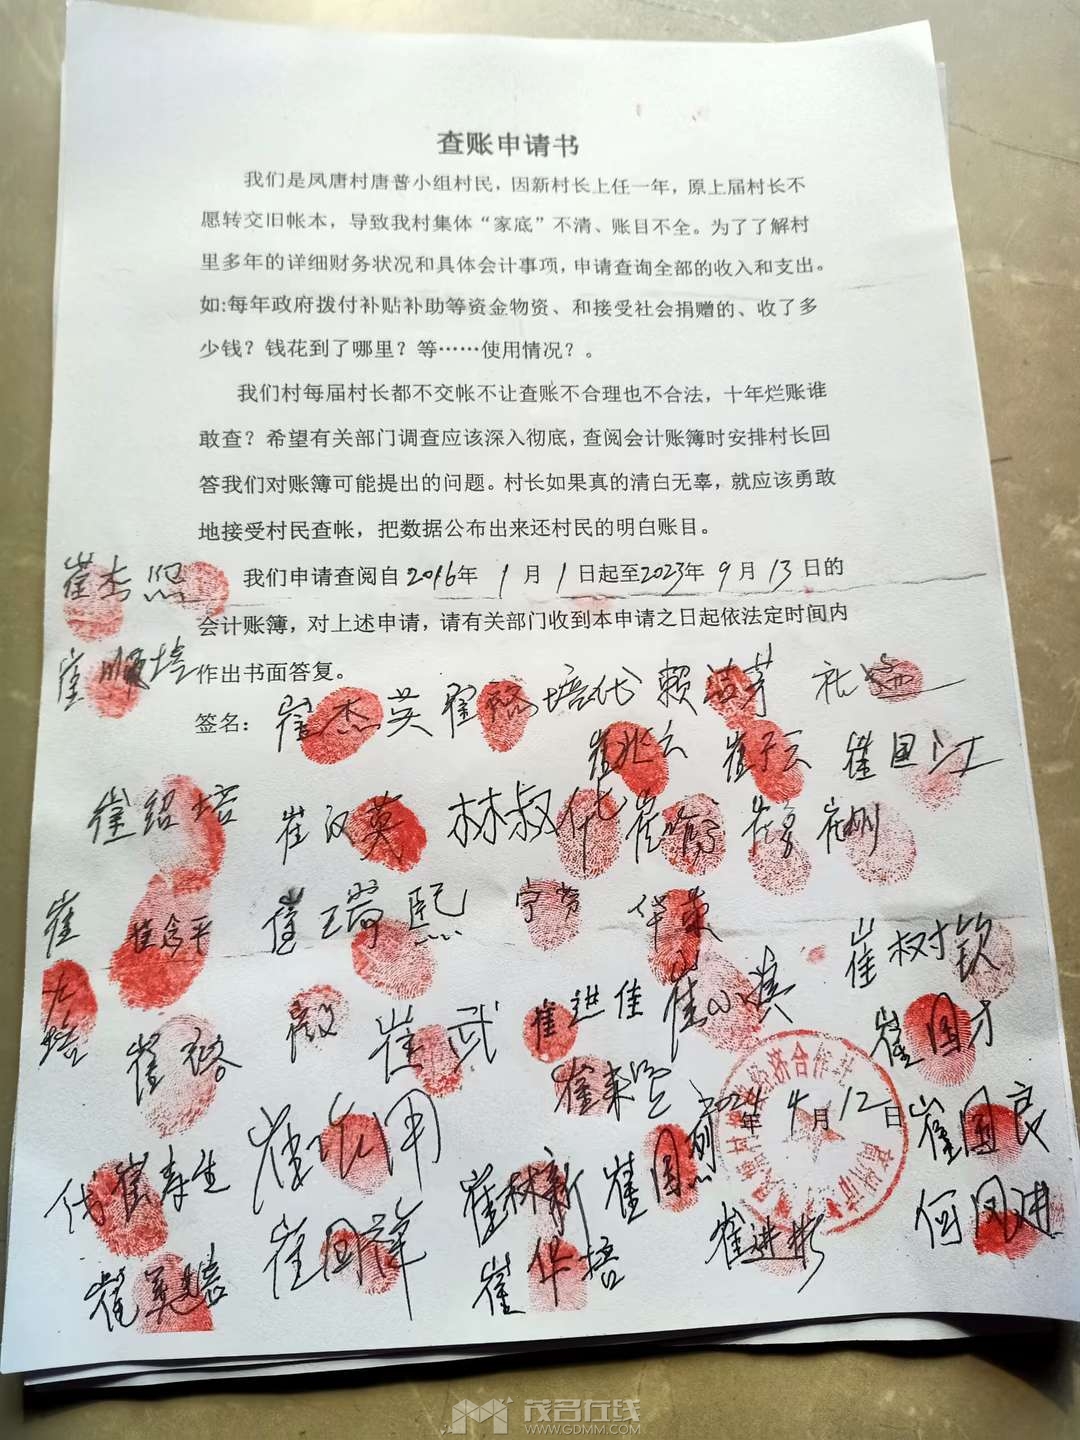 查账申请书
我们是凤唐村唐普小组村民，因新村长上任一年，原上届村长不
愿转交旧帐本，导致我村集体“家底”不清、账目不全。为了了解村
里多年的详细财务状况和具体会计事项，申请查询全部的收入和支出。
如:每年政府拨付补贴补助等资金物资、和接受社会捐赠的、收了多
少钱？钱花到了哪里？等……使用情况？。
我们村每届村长都不交帐不让查账不合理也不合法，十年烂账谁
敢查？希望有关部门调查应该深入彻底，查阅会计账簿时安排村长回
答我们对账簿可能提出的问题。村长如果真的清白无辜，就应该勇敢
地接受村民查帐，把数据公布出来还村民的明白账目。
我们申请查阅自2016年1月1日起至2023年9月13日的
会计账簿，对上述申请，请有关部门收到本申请之日起依法定时间内
作出书面答复。
崔杰熙
崔顺培
签名：崔杰英
崔兆云 崔子云 崔国江
崔绍培 崔汉英 林叔
崔念平 崔瑞熙
华荣
崔树钦
崔武 崔进佳
崔国才
崔荣
2024年4月12日
经济合作社
崔国良
代崔寿生
崔林新 崔国烈
崔国祥 崔华培 崔进彬 何凤进
茂名在线
WWW.GDMM.COM